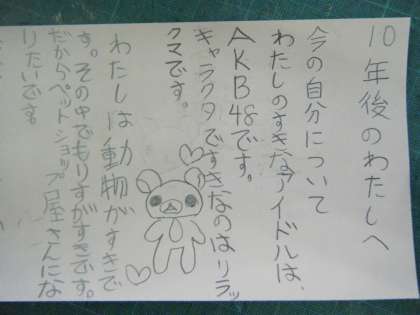 10年後のわたしへ
今の自分について
わたしのすきなアイドルは、
AKB48です。
キャラクタですきなのはリラッ
クマです。
わたしは動物がすきで
す。その中でもりすがすきです。
だからペットショップ屋さんにな
りたいです。